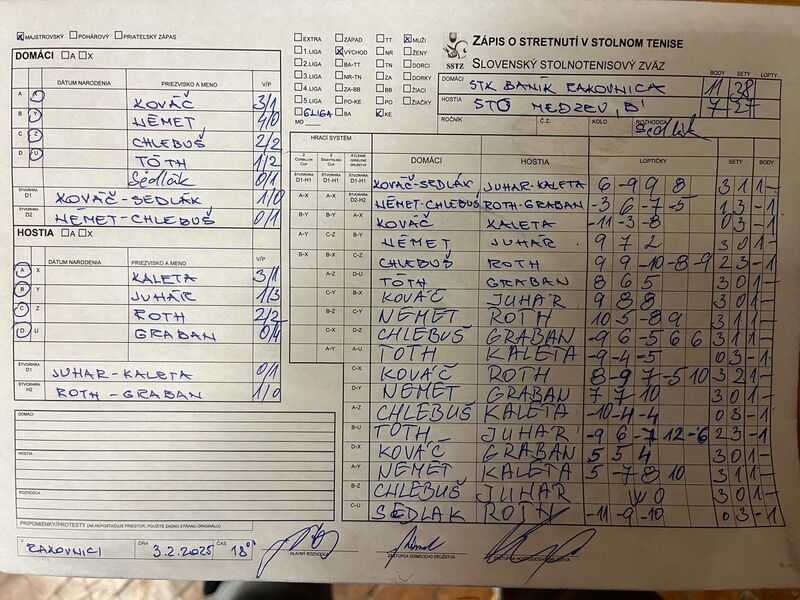 MAJSTROVSKÝ POHÁROVÝ PRIATEĽSKÝ ZÁPAS
DOMÁCI A X
DÁTUM NARODENIA PRIEZVISKO A MENO V/P
A X KOVÁČ 3/1
B Y NÉMET 4/0
C Z CHLEBUŠ 2/2
D U TÓTH 1/2
Sedlák 0/1
ŠTVORHRA D1 KOVÁČ-SEDLÁK 1/0
ŠTVORHRA D2 NÉMET-CHLEBUŠ 0/1
HOSTIA A X
DÁTUM NARODENIA PRIEZVISKO A MENO V/P
A X KALETA 3/1
B Y JUHÁR 1/3
C Z ROTH 2/2
D U GRABAN 0/4
ŠTVORHRA D1 JUHAR-KALETA 0/1
ŠTVORHRA H2 ROTH-GRABAN 1/0
DOMÁCI
HOSTIA
ROZHODCA
PRIPOMIENKY/PROTESTY (AK NEPOSTAČUJE PRIESTOR, POUŽITE ZADNÚ STRANU ORIGINÁLU)
V RAKOVNICI DŇA 3.2.2025 ČAS 18⁰⁰
HLAVNÝ ROZHODCA ZÁSTUPCA DOMÁCEHO DRUŽSTVA ZÁSTUPCA HOSŤUJÚCEHO DRUŽSTVA
EXTRA ZÁPAD TT MUŽI
1.LIGA VÝCHOD NR ŽENY
2.LIGA BA-TT TN DORCI
3.LIGA NR-TN ZA DORKY
4.LIGA ZA-BB BB ŽIACI
5.LIGA PO-KE PO ŽIAČKY
6 LIGA BA KE
MO
SSTZ
ZÁPIS O STRETNUTÍ V STOLNOM TENISE
SLOVENSKÝ STOLNOTENISOVÝ ZVÄZ
BODY SETY LOPTY
DOMÁCI STK BANÍK RAKOVNICA 11 38
HOSTIA STO MEDZEV "B" 7 27
ROČNÍK Č.Z. KOLO ROZHODCA Sedlák
HRACÍ SYSTÉM
DOMÁCI HOSTIA LOPTIČKY SETY BODY
D1-H1 D1-H1 D1-H1 KOVÁČ-SEDLÁK JUHAR-KALETA 6 -9 9 8 3 1 1 -
A-X A-X D2-H2 NÉMET-CHLEBUŠ ROTH-GRABAN -3 6 -7 -5 1 3 - 1
B-Y B-Y A-X KOVÁČ KALETA -11 -3 -8 0 3 - 1
A-Y C-Z B-Y NÉMET JUHAR 9 7 2 3 0 1 -
B-X B-X C-Z CHLEBUŠ ROTH 9 9 -10 -8 -9 2 3 - 1
A-Z D-U TÓTH GRABAN 8 6 5 3 0 1 -
C-Y B-X KOVÁČ JUHÁR 9 8 8 3 0 1 -
B-Z C-Y NÉMET ROTH 10 5 -8 9 3 1 1 -
C-X D-Z CHLEBUŠ GRABAN -9 6 -5 6 6 3 1 1 -
A-Y A-U TÓTH KALETA -9 -4 -5 0 3 - 1
C-X KOVÁČ ROTH 8 -9 7 -5 10 3 2 1 -
D-Y NÉMET GRABAN 7 7 10 3 0 1 -
A-Z CHLEBUŠ KALETA -10 -4 -4 0 3 - 1
B-U TÓTH JUHÁR -9 6 -7 12 -6 2 3 - 1
D-X KOVÁČ GRABAN 5 5 4 3 0 1 -
A-Y NÉMET KALETA 5 -7 8 10 3 1 1 -
B-Z CHLEBUŠ JUHÁR WO 3 0 1 -
C-U SEDLAK ROTH -11 -9 -10 0 3 - 1